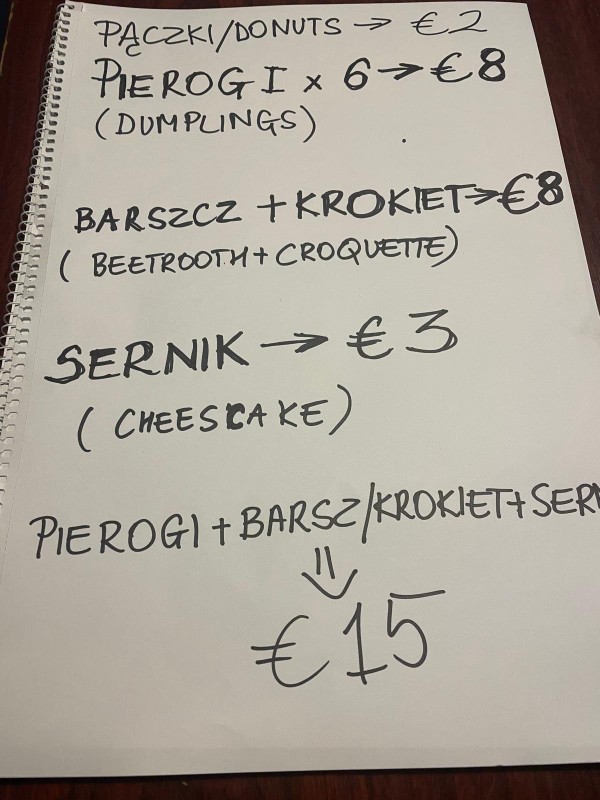 PĄCZKI/DONUTS → €2
PIEROGI x 6 → €8
(DUMPLINGS)
BARSZCZ + KROKIET → €8
( BEETROOTH + CROQUETTE)
SERNIK → €3
( CHEESCAKE)
PIEROGI + BARSZ/KROKIET + SERN
⇓
€15